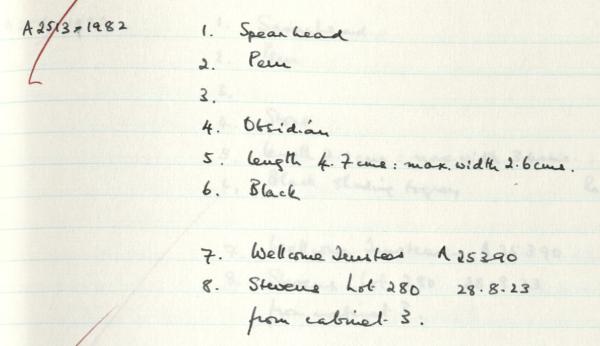 A2513-1982 1. Spearhead
2. Peru
3.
4. Obsidian
5. length 4.7cms: max. width 2.6cms.
6. Black
7. Wellcome Trustees A25390
8. Stevens Lot 280 28.8.23
from cabinet 3.